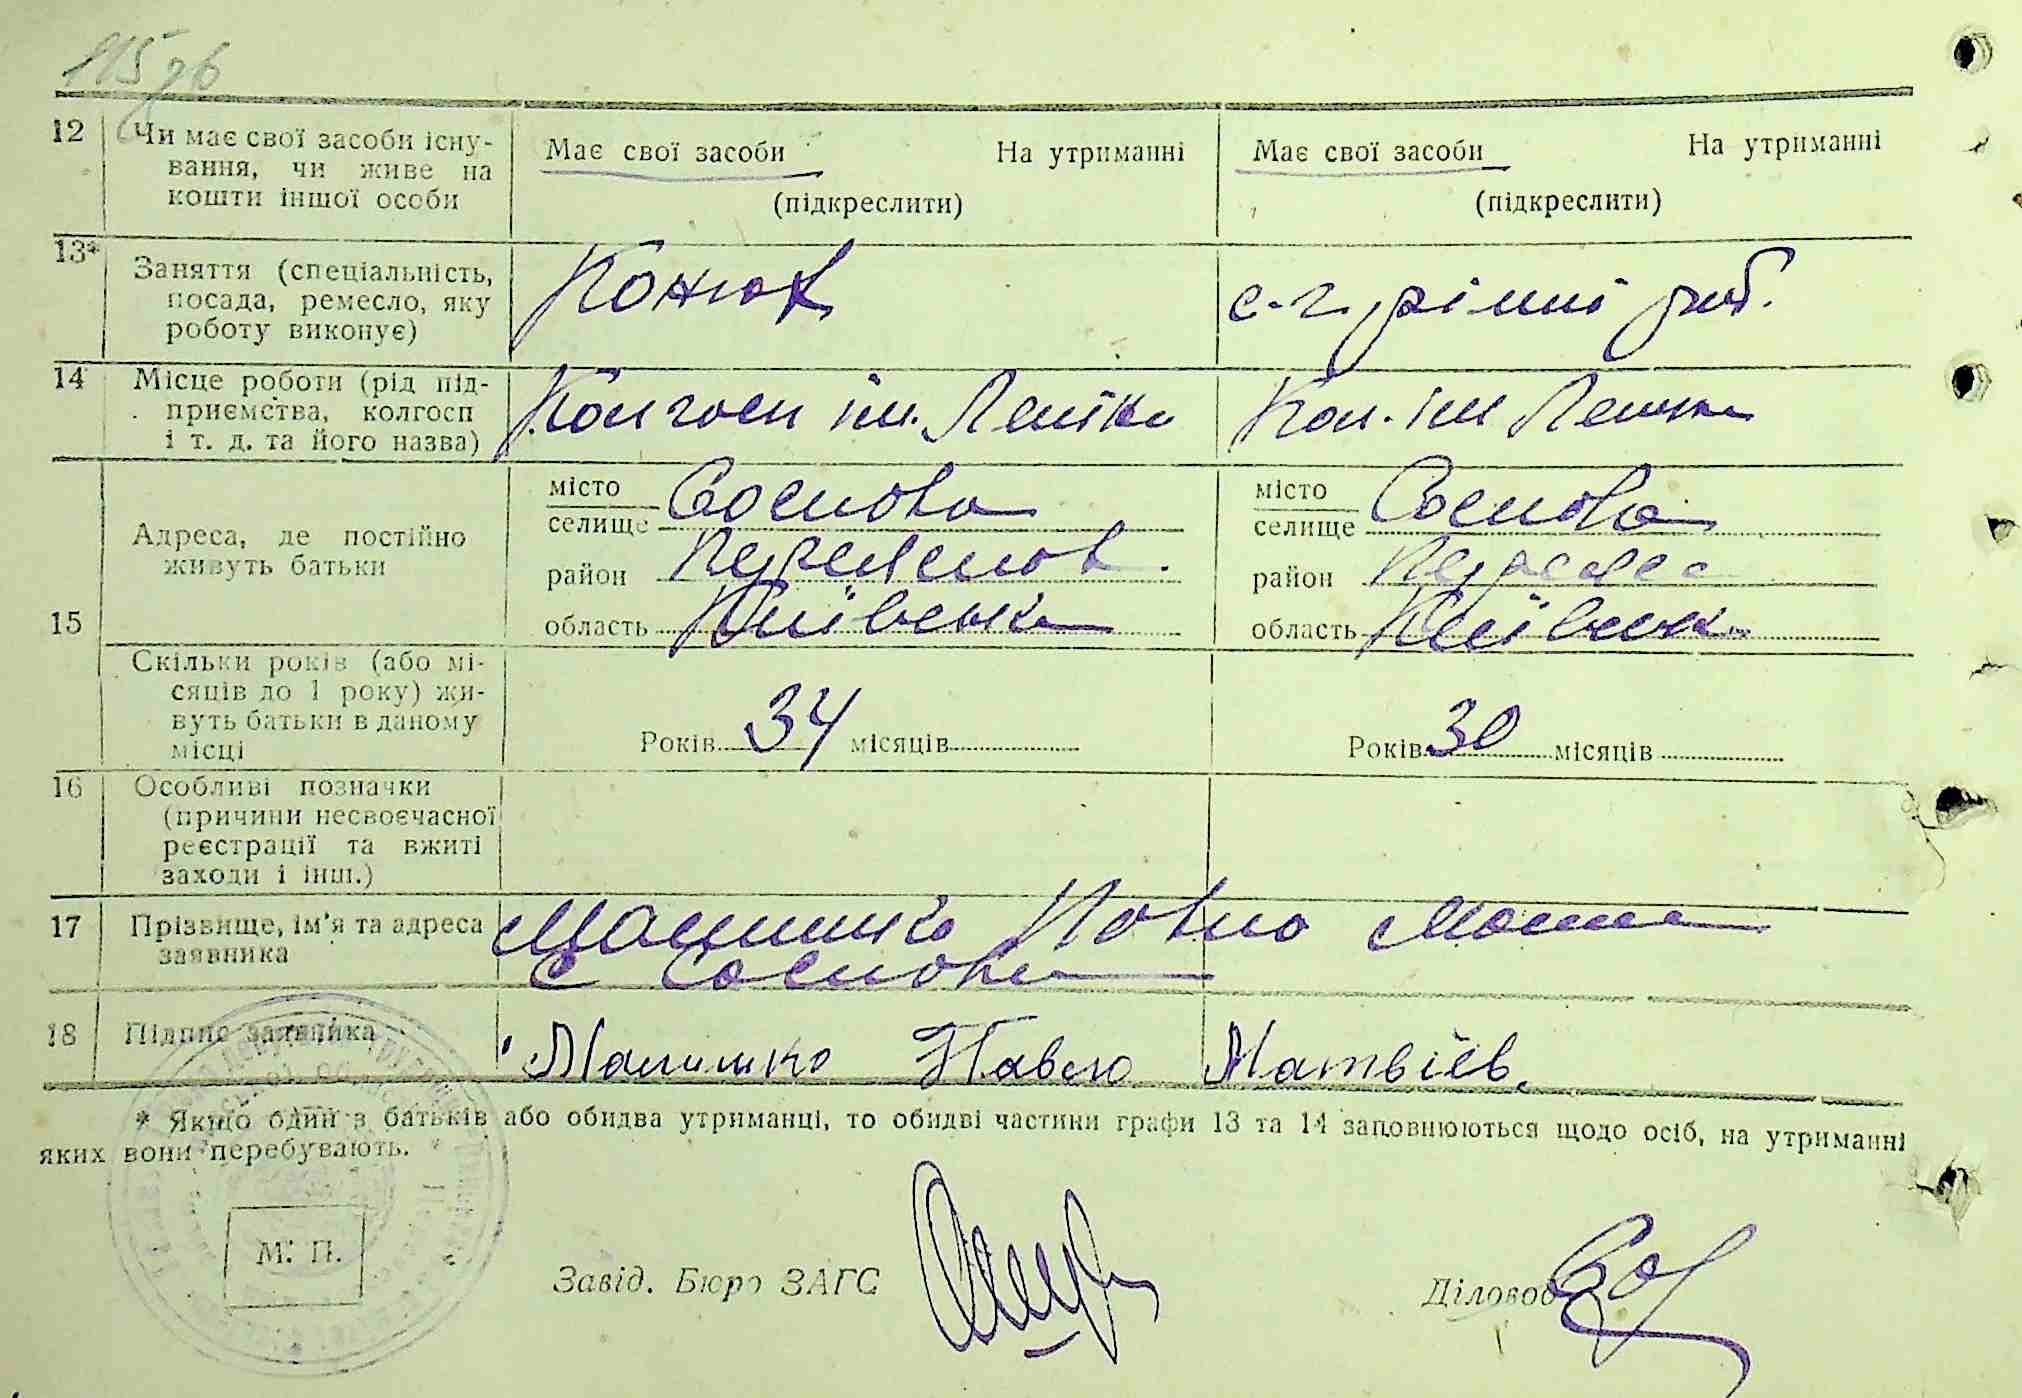 115 зв
12 Чи має свої засоби існу- Має свої засоби На утриманні Має свої засоби На утриманні
вання, чи живе на
кошти іншої особи (підкреслити) (підкреслити)
13* Заняття (спеціальність, Конюх с-г різні роб.
посада, ремесло, яку
роботу виконує)
14 Місце роботи (рід під- Колгосп ім. Леніна Кол. ім Леніна
приємства, колгосп
і т. д. та його назва)
місто Соснова місто Соснова
селище селище
Адреса, де постійно
живуть батьки район район
15 область Київська область Київськ
Скільки років (або мі-
сяців до 1 року) жи-
вуть батьки в даному Років 34 місяців Років 30 місяців
місці
16 Особливі позначки
(причини несвоєчасної
реєстрації та вжиті
заходи і інш.)
17 Прізвище, ім'я та адреса Павло
заявника с Соснова
18 Підпис заявника Малишко Павло Матвіїв.
* Якщо один з батьків або обидва утриманці, то обидві частини графи 13 та 14 заповнюються щодо осіб, на утриманні
яких вони перебувають.
М. П.
Завід. Бюро ЗАГС Діловод